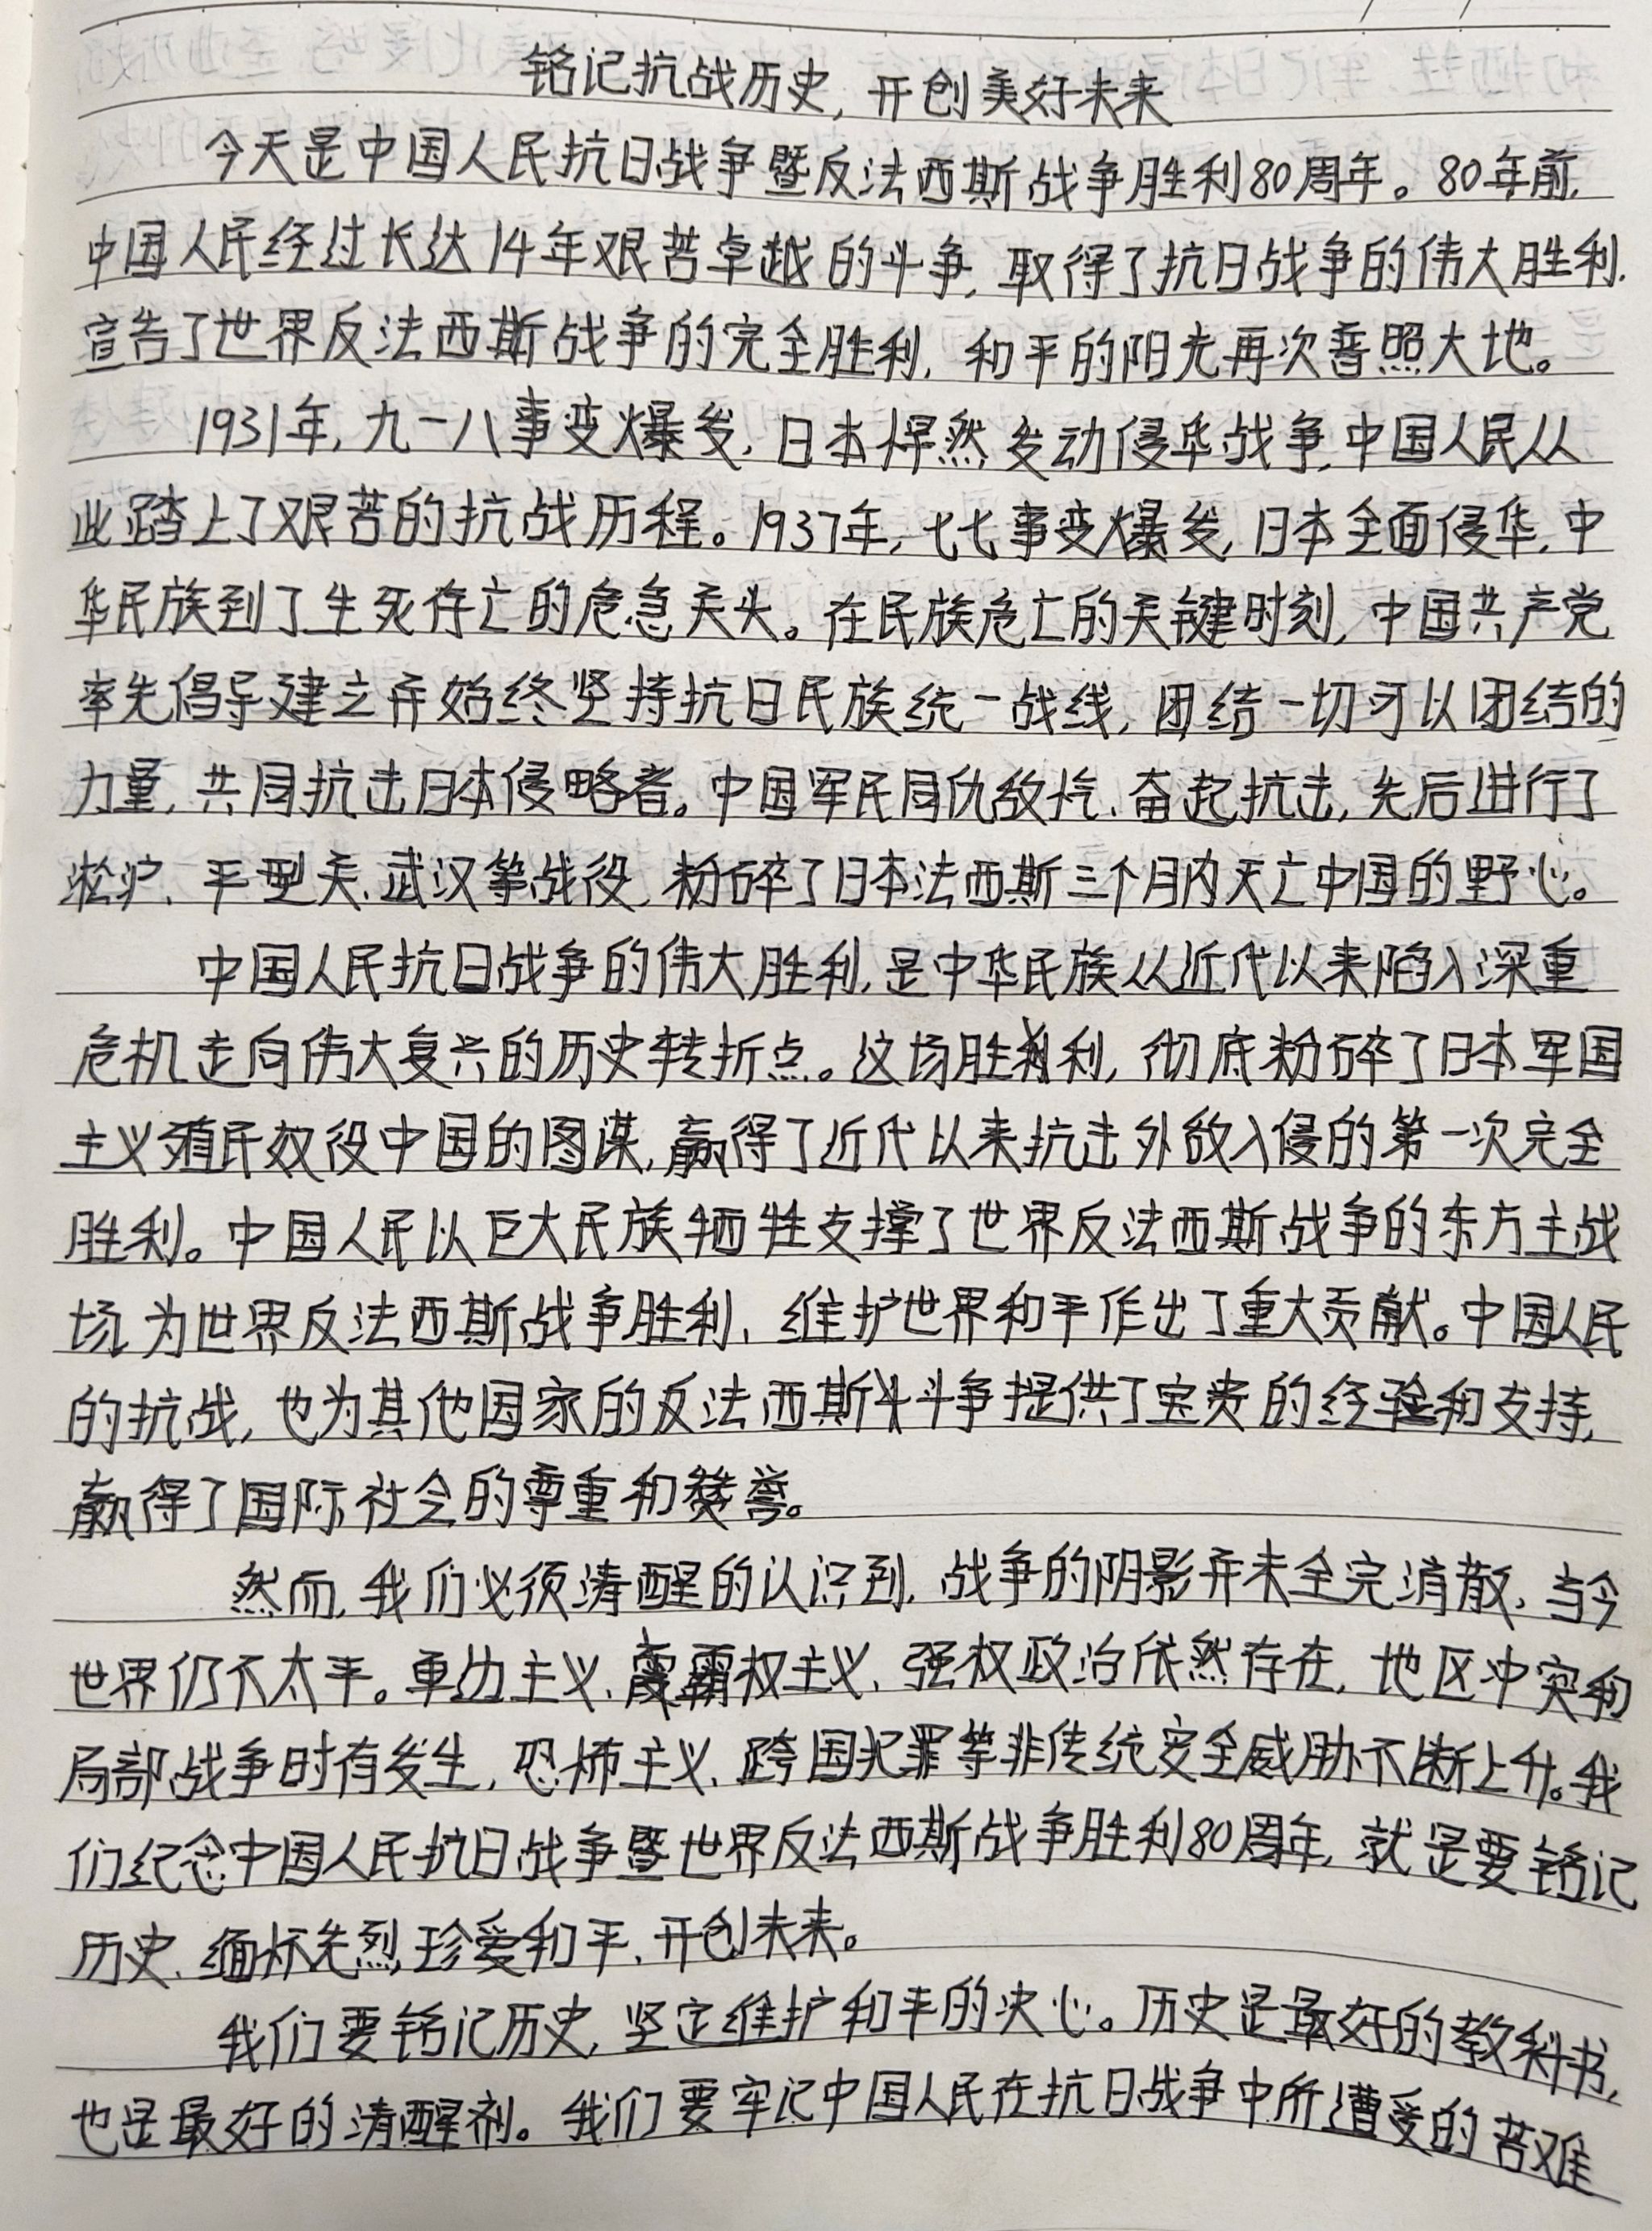 铭记抗战历史,开创美好未来
今天是中国人民抗日战争暨反法西斯战争胜利80周年。80年前,
中国人民经过长达14年艰苦卓越的斗争,取得了抗日战争的伟大胜利.
宣告了世界反法西斯战争的完全胜利,和平的阳光再次普照大地。
1931年,九一八事变爆发,日本悍然发动侵华战争,中国人民从
此踏上了艰苦的抗战历程。1937年,七七事变爆发,日本全面侵华,中
华民族到了生死存亡的危急关头。在民族危亡的关键时刻,中国共产党
率先倡导建立并始终坚持抗日民族统一战线,团结一切可以团结的
力量,共同抗击日本侵略者。中国军民同仇敌忾、奋起抗击,先后进行了
淞沪、平型关、武汉等战役,粉碎了日本法西斯三个月内灭亡中国的野心。
中国人民抗日战争的伟大胜利,是中华民族从近代以来陷入深重
危机走向伟大复兴的历史转折点。这场胜利,彻底粉碎了日本军国
主义殖民奴役中国的图谋,赢得了近代以来抗击外敌入侵的第一次完全
胜利。中国人民以巨大民族牺牲支撑了世界反法西斯战争的东方主战
场,为世界反法西斯战争胜利、维护世界和平作出了重大贡献。中国人民
的抗战,也为其他国家的反法西斯斗争提供了宝贵的经验和支持,
赢得了国际社会的尊重和赞誉。
然而,我们必须清醒的认识到,战争的阴影并未全完消散,当今
世界仍不太平。单边主义、霸权主义、强权政治依然存在,地区冲突和
局部战争时有发生,恐怖主义、跨国犯罪等非传统安全威胁不断上升。我
们纪念中国人民抗日战争暨世界反法西斯战争胜利80周年,就是要铭记
历史、缅怀先烈,珍爱和平、开创未来。
我们要铭记历史,坚定维护和平的决心。历史是最好的教科书,
也是最好的清醒剂。我们要牢记中国人民在抗日战争中所遭受的苦难